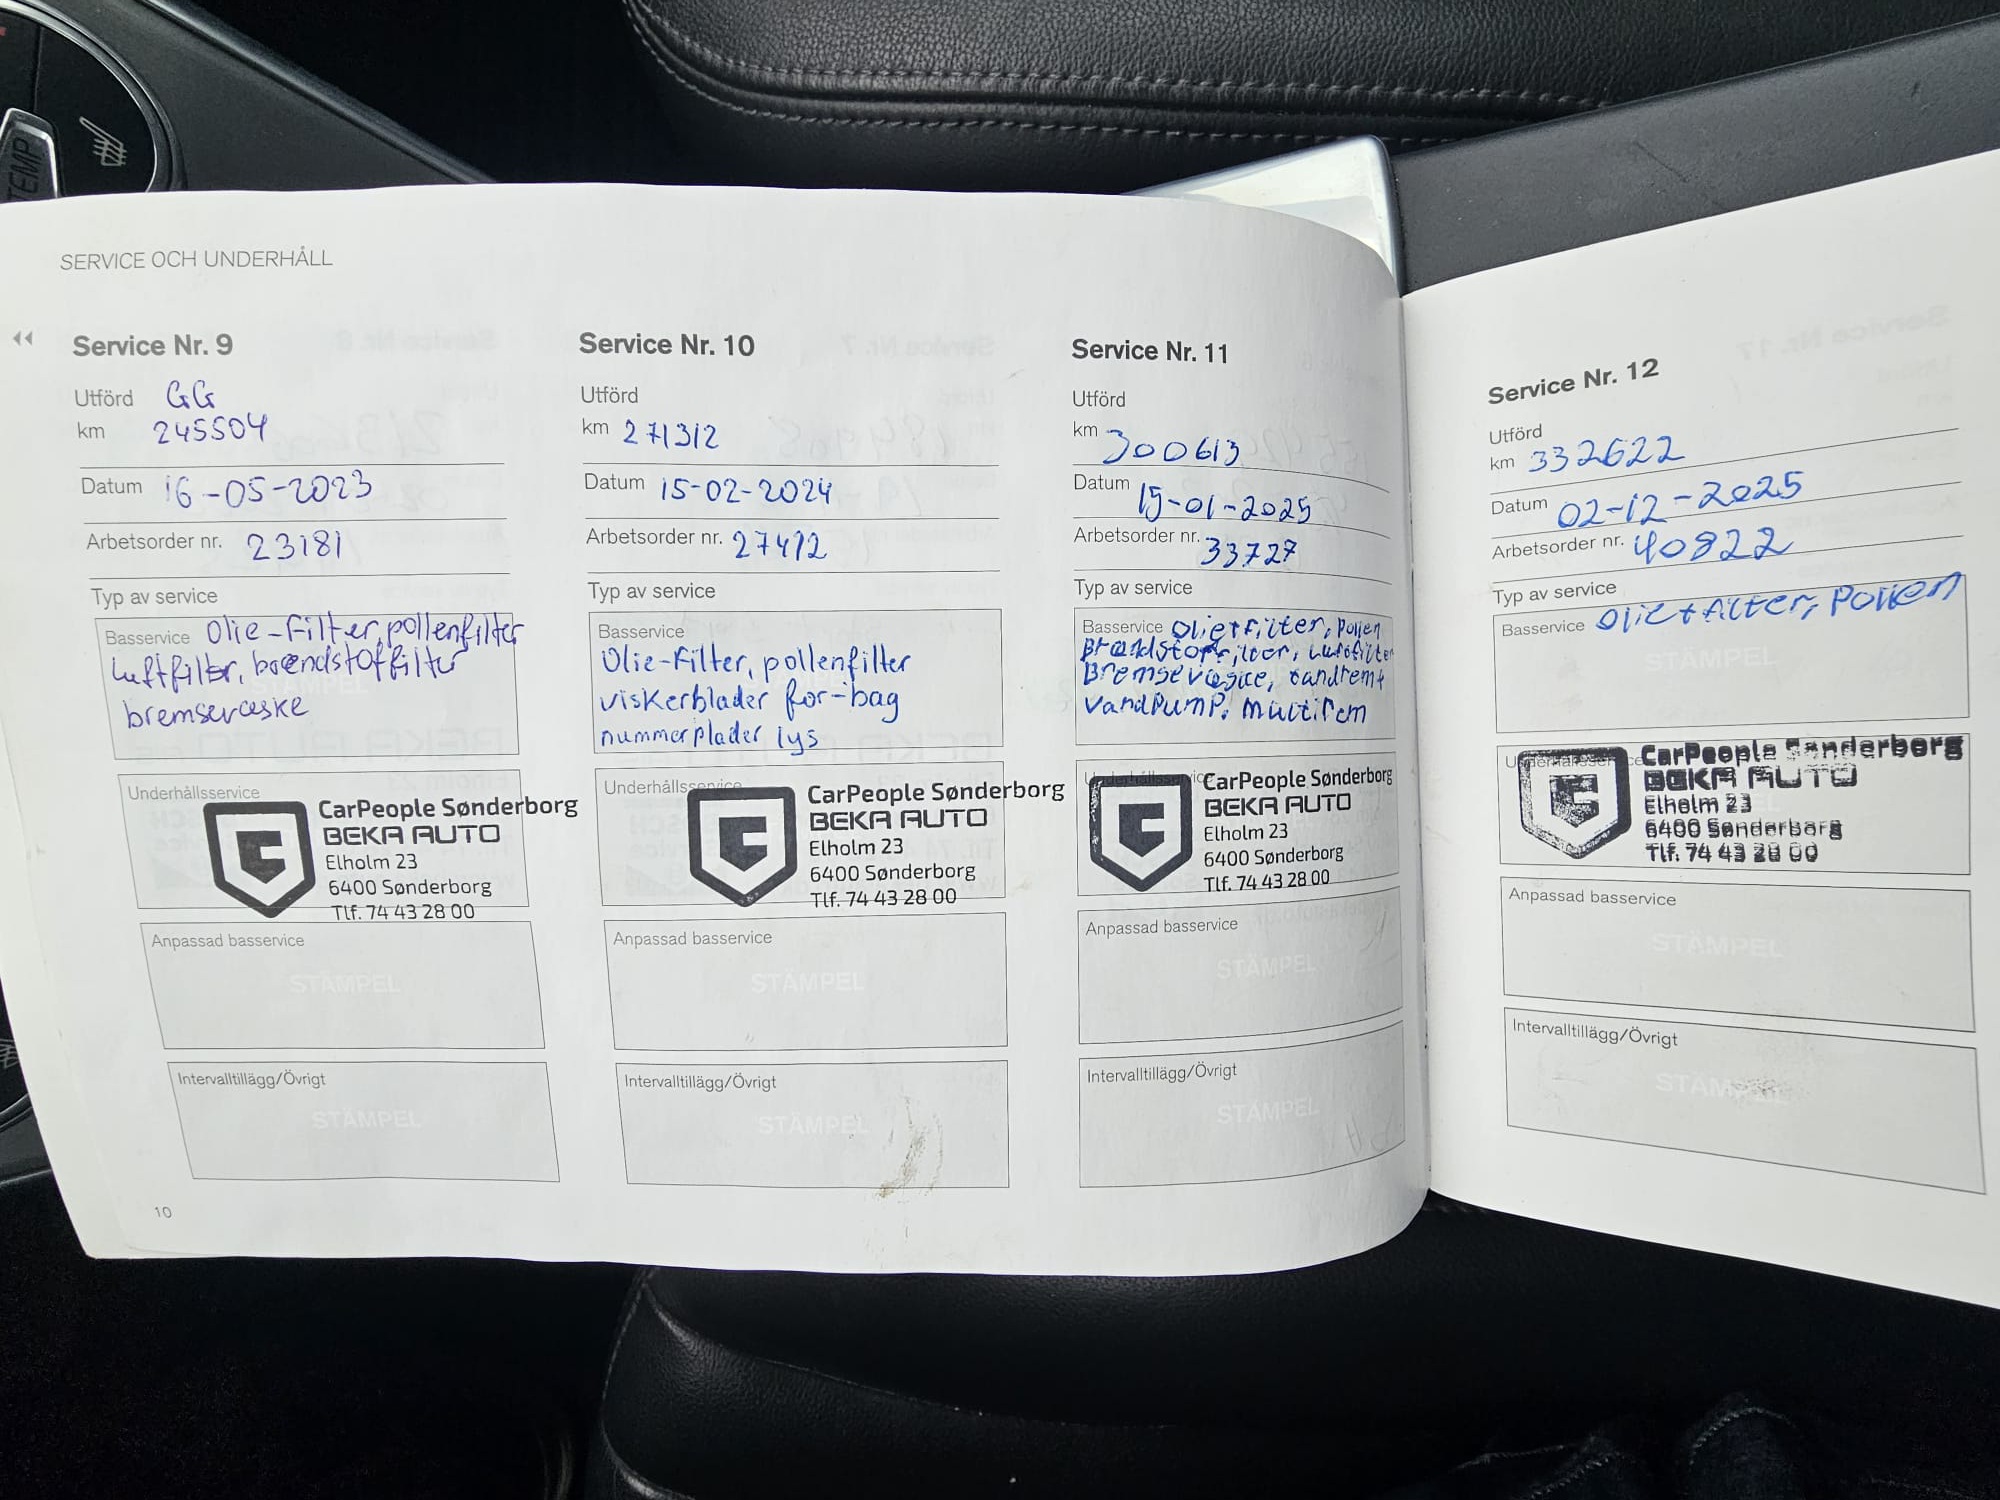 TEMP
SERVICE OCH UNDERHÅLL
Service Nr. 9
Utförd GG
km 245504
Datum 16-05-2023
Arbetsorder nr. 23181
Typ av service
Basservice Olie-Filter, pollenfilter
luftfilter, brændstoffilter
bremsevæske
Underhållsservice
CarPeople Sønderborg
BEKA AUTO
Elholm 23
6400 Sønderborg
Tlf. 74 43 28 00
Anpassad basservice
STÄMPEL
Intervalltillägg/Övrigt
STÄMPEL
10
Service Nr. 10
Utförd
km 271312
Datum 15-02-2024
Arbetsorder nr. 27412
Typ av service
Basservice
Olie-Filter, pollenfilter
viskerblader for-bag
nummerplader lys
Underhållsservice
CarPeople Sønderborg
BEKA AUTO
Elholm 23
6400 Sønderborg
Tlf. 74 43 28 00
Anpassad basservice
STÄMPEL
Intervalltillägg/Övrigt
STÄMPEL
Service Nr. 11
Utförd
km 300613
Datum 15-01-2025
Arbetsorder nr. 33727
Typ av service
Basservice Olie+filter, Pollen
Brændstoffilter, Luftfilter
Bremsevæske, tandrem+
vandpump, multirem
Underhållsservice
CarPeople Sønderborg
BEKA AUTO
Elholm 23
6400 Sønderborg
Tlf. 74 43 28 00
Anpassad basservice
STÄMPEL
Intervalltillägg/Övrigt
STÄMPEL
Service Nr. 12
Utförd
km 332622
Datum 02-12-2025
Arbetsorder nr. 40822
Typ av service
Basservice Olie+filter, Pollen
STÄMPEL
Underhållsservice
CarPeople Sønderborg
BEKA AUTO
Elholm 23
6400 Sønderborg
Tlf. 74 43 28 00
Anpassad basservice
STÄMPEL
Intervalltillägg/Övrigt
STÄMPEL